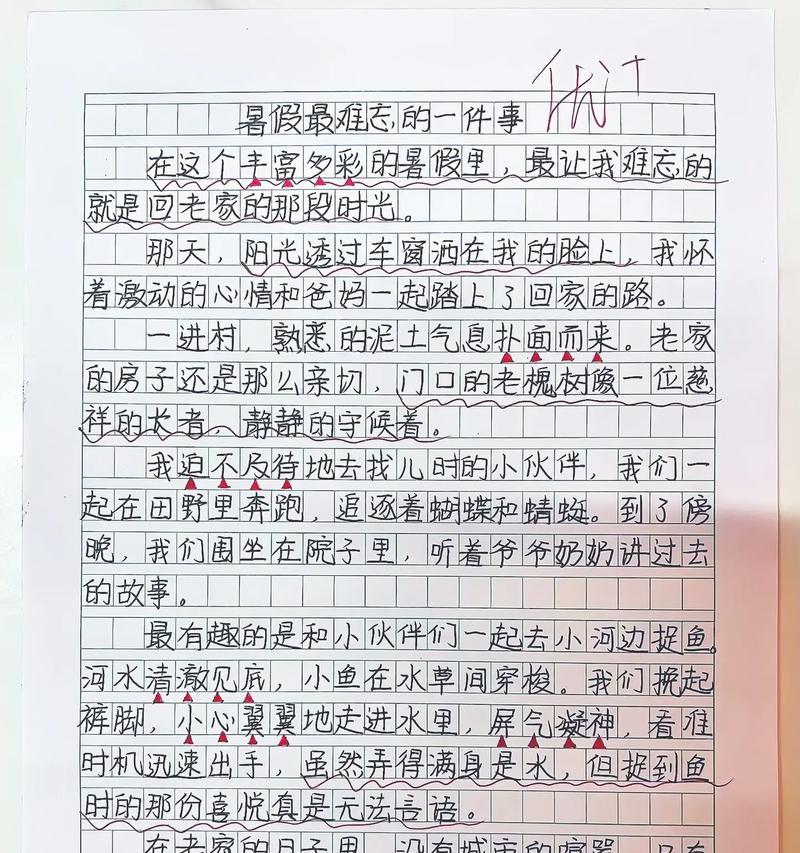 优+
暑假最难忘的一件事
在这个丰富多彩的暑假里，最让我难忘的
就是回老家的那段时光。
那天，阳光透过车窗洒在我的脸上，我怀
着激动的心情和爸妈一起踏上了回家的路。
一进村，熟悉的泥土气息扑面而来。老家
的房子还是那么亲切，门口的老槐树像一位慈
祥的长者，静静的守候着。
我迫不及待地去找儿时的小伙伴，我们一
起在田野里奔跑，追逐着蝴蝶和蜻蜓。到了傍
晚，我们围坐在院子里，听着爷爷奶奶讲过去
的故事。
最有趣的是和小伙伴们一起去小河边捉鱼。
河水清澈见底，小鱼在水草间穿梭。我们挽起
裤脚，小心翼翼地走进水里，屏气凝神，看准
时机迅速出手，虽然弄得满身是水，但捉到鱼
时的那份喜悦真是无法言语。
在老家的日子里，没有城市的喧嚣，只有